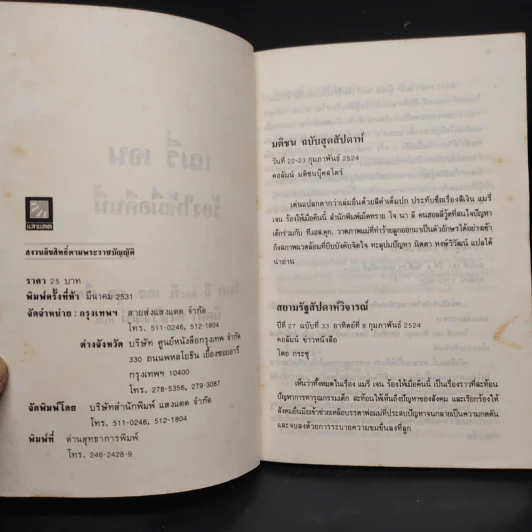 แสงแดด
สงวนลิขสิทธิ์ตามพระราชบัญญัติ
ราคา 25 บาท
พิมพ์ครั้งที่ห้า มีนาคม 2531
จัดจำหน่าย : กรุงเทพฯ สายส่งแสงแดด จำกัด
โทร. 511-0246, 512-1804
ต่างจังหวัด บริษัท ศูนย์หนังสือกรุงเทพ จำกัด
330 ถนนพหลโยธิน เยื้องซอยอารี
กรุงเทพฯ 10400
โทร. 278-5356, 279-3087
จัดพิมพ์โดย บริษัทสำนักพิมพ์ แสงแดด จำกัด
โทร. 511-0246, 512-1804
พิมพ์ที่ ด่านสุทธาการพิมพ์
โทร. 246-2428-9
มติชน ฉบับสุดสัปดาห์
วันที่ 22-23 กุมภาพันธ์ 2524
คอลัมน์ มติชนบุ๊คสโตร์
เด่นแปลกตากว่าเล่มอื่นด้วยสีดำเต็มปก ประทับชื่อเรื่องสีเงิน แมรี่
เจน ร้องไห้เมื่อคืนนี้ สำนักพิมพ์เม็ดทราย โจ นา ลี คนฮอลลีวู้ดที่สนใจปัญหา
เด็กร่วมกับ ที.เอส.คุก. วาดภาพแม่ที่ทำร้ายลูกออกมาเป็นตัวอักษรได้อย่างเข้า
ถึงสภาพแวดล้อมที่บีบบังคับจิตใจ ทะลุปมปัญหา นิดดา หงษ์วิวัฒน์ แปลได้
น่าอ่าน
สยามรัฐสัปดาห์วิจารณ์
ปีที่ 27 ฉบับที่ 33 อาทิตย์ที่ 8 กุมภาพันธ์ 2524
คอลัมน์ ข่าวหนังสือ
โดย กระชุ
เห็นว่าทั้งหมดในเรื่อง แมรี่ เจน ร้องไห้เมื่อคืนนี้ เป็นเรื่องราวที่สะท้อน
ปัญหาการทารุณกรรมเด็ก สะท้อนให้เห็นถึงปัญหาของสังคม และเรียกร้องให้
สังคมยื่นมือเข้าช่วยเหลือบรรดาพ่อแม่ที่ประสบปัญหาจนกลายเป็นความกดดัน
และจบลงด้วยการระบายความขมขื่นลงที่ลูก